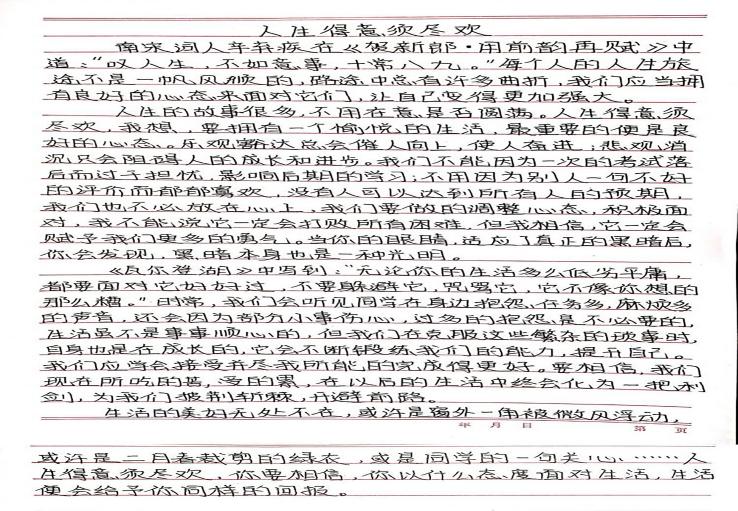 人生得意须尽欢
南宋词人辛弃疾在《贺新郎·用前韵再赋》中
道：“叹人生，不如意事，十常八九。”每个人的人生旅
途不是一帆风顺的，路途中总有许多曲折，我们应当拥
有良好的心态来面对它们，让自己变得更加强大。
人生的故事很多，不用在意是否圆满。人生得意须
尽欢，我想，要拥有一个愉悦的生活，最重要的便是良
好的心态。乐观豁达总会催人向上，使人奋进；悲观消
沉只会阻碍人的成长和进步。我们不能因为一次的考试落
后而过于担忧，影响后期的学习；不用因为别人一句不好
的评价而郁郁寡欢，没有人可以达到所有人的预期，
我们也不必放在心上，我们要做的调整心态，积极面
对，我不能说它一定会打败所有困难，但我相信，它一定会
赋予我们更多的勇气。当你的眼睛，适应了真正的黑暗后，
你会发现，黑暗本身也是一种光明。
《瓦尔登湖》中写到：“无论你的生活多么低劣平庸，
都要面对它好好过，不要躲避它，咒骂它，它不像你想的
那么糟。”时常，我们会听见同学在身边抱怨、任务多，麻烦多
的声音，还会因为部分小事伤心，过多的抱怨是不必要的，
生活虽不是事事顺心的，但我们在克服这些繁杂的琐事时，
自身也是在成长的，它会不断锻练我们的能力，提升自己。
我们应学会接受并尽我所能的完成得更好。要相信，我们
现在所吃的苦，受的累，在以后的生活中终会化为一把利
剑，为我们披荆斩棘，开辟前路。
生活的美好无处不在，或许是窗外一角被微风浮动，
年 月 日 第 页
或许是二月春裁剪的绿衣，或是同学的一句关心……人
生得意须尽欢，你要相信，你以什么态度面对生活，生活
便会给予你同样的回报。